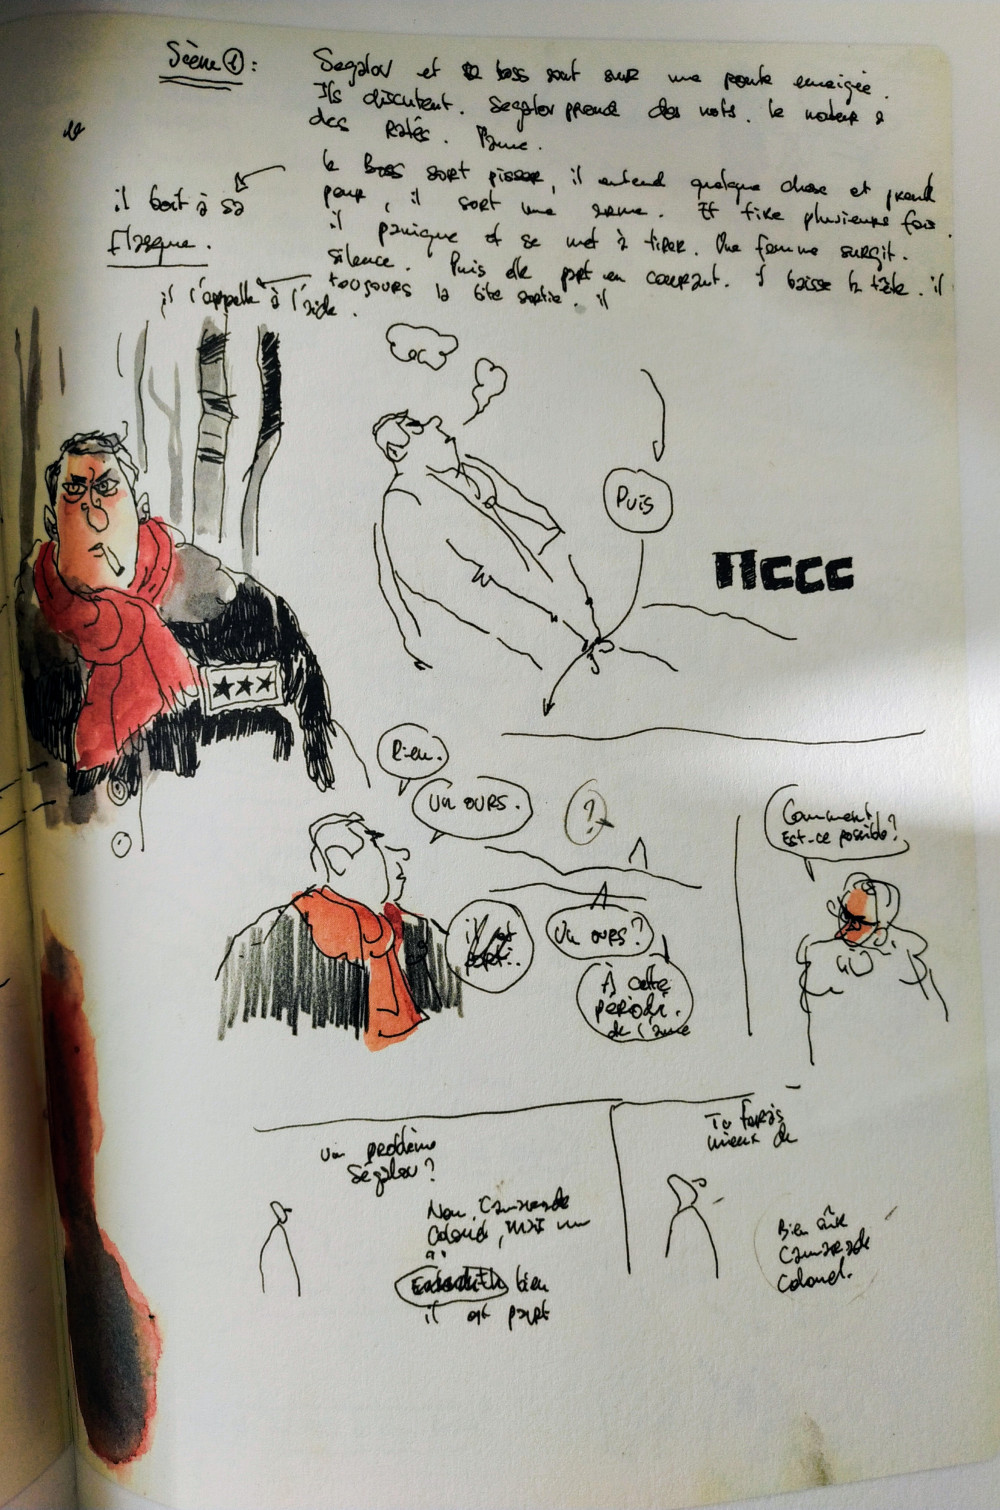 Scène ①:
Segalov et le boss sont sur une route enneigée.
Ils discutent. Segalov prend des nots. Le moteur a
des Ratés. Panne.
le Boss sort pisser, il entend quelque chose et prend
peur, il sort une arme. Et tire plusieurs fois.
il panique et se met à tirer. Une femme surgit.
silence. Puis elle part en courant. I baisse la tête. il
toujours la bite sortie. il
il boit à sa
flasque.
il l'appelle à l'aide.
Puis
ПCCC
★★★
Rien.
Un OURS.
?
il est
parti..
Un OURS?
À cette
période.
de l'année
Comment
Est-ce possible?
Un problème
Ségalov?
Non, Camarade
Colonel, mais un
bien
il est part
Tu ferais
mieux de
Bien sûr
Camarade
Colonel.